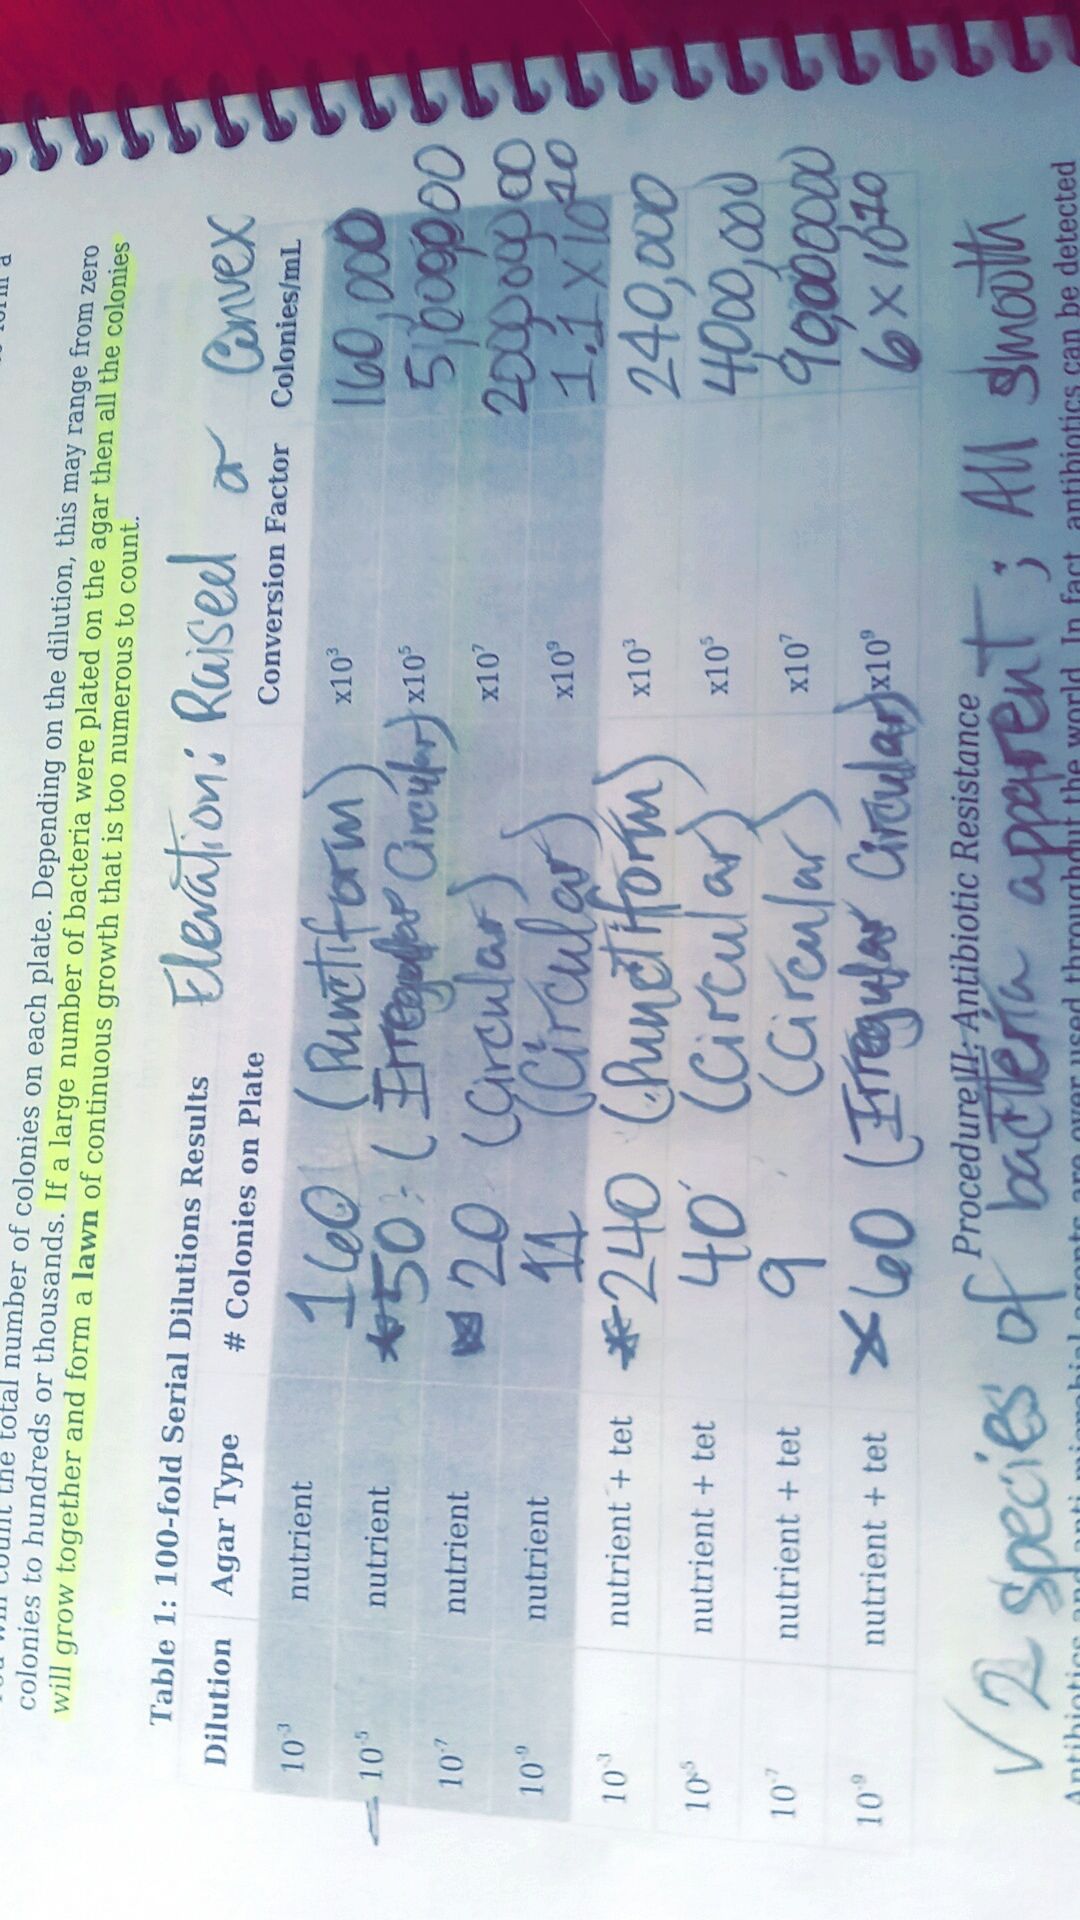 count the total number of colonies on each plate. Depending on the dilution, this may range from zero
colonies to hundreds or thousands. If a large number of bacteria were plated on the agar then all the colonies
will grow together and form a lawn of continuous growth that is too numerous to count.
Elevation: Raised or Convex
Table 1: 100-fold Serial Dilutions Results
Dilution Agar Type # Colonies on Plate Conversion Factor Colonies/mL
10-3 nutrient 160 (Punctiform) x10³ 160,000
10-5 nutrient *50 (Irregular Circular) x10⁵ 5,000,000
10-7 nutrient 20 (Circular) x10⁷ 200,000,000
10-9 nutrient 11 (Circular) x10⁹ 1.1 x 10¹⁰
10-3 nutrient + tet *240 (Punctiform) x10³ 240,000
10-5 nutrient + tet 40 (Circular) x10⁵ 4000,000
10-7 nutrient + tet 9 (Circular) x10⁷ 90,000,000
10-9 nutrient + tet x 60 (Irregular Circular) x10⁹ 6 x 10¹⁰
Procedure III: Antibiotic Resistance
√ 2 species of bacteria apparent; All smooth
Antibiotics and anti-microbial agents are over used throughout the world. In fact, antibiotics can be detected